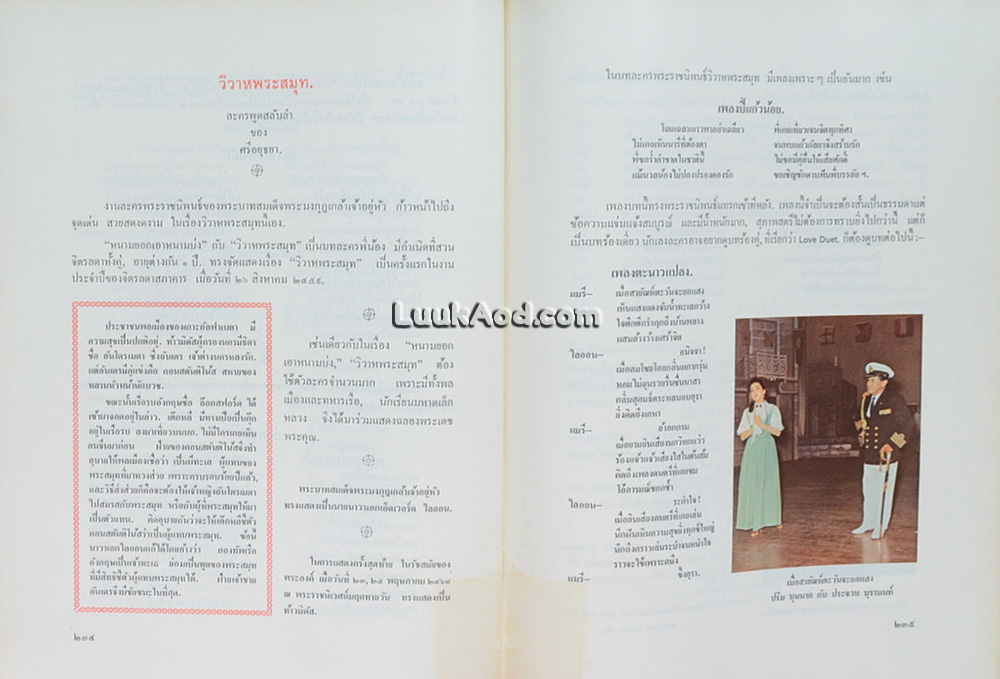 วิวาหพระสมุท.
ละครพูดสลับลำ
ของ
ศรีอยุธยา.
งานละครพระราชนิพนธ์ของพระบาทสมเด็จพระมงกุฎเกล้าเจ้าอยู่หัว ก้าวหน้าไปถึง
จุดเด่น สวยสดงดงาม ในเรื่องวิวาหพระสมุทนี้เอง.
“หนามยอกเอาหนามบ่ง” กับ “วิวาหพระสมุท” เป็นบทละครพี่น้อง มีกำเนิดที่สวน
จิตรลดาทั้งคู่, อายุต่างกัน ๑ ปี. ทรงจัดแสดงเรื่อง “วิวาหพระสมุท” เป็นครั้งแรกในงาน
ประจำปีของจิตรลดาสภาคาร เมื่อวันที่ ๒๖ สิงหาคม ๒๔๕๙.
ประชาชนพลเมืองของเกาะอัลฟาเบตา มี
ความสุขเป็นปกติอยู่. ท้าวมิดัสผู้ครองนครมีธิดา
ชื่อ อันโดรเมดา ซึ่งอันเดร เจ้าต่างนครหลงรัก.
แต่อันเดรมีคู่แข่งคือ คอนสตันติโนส สหายของ
พลานตัวหนึ่งกับบวช.
ขณะนั้นเรือรบอังกฤษชื่อ อ๊อกสฟอร์ด ได้
เข้ามาจอดอยู่ในอ่าว. เต๊กหลี มีหางเปียเป็นกุ๊ก
อยู่ในเรือรบ ลงมาเที่ยวบนบก. ไม่มีใครเคยเห็น
คนจีนมาก่อน ฝ่ายของคอนสตันติโนสจึงทำ
อุบายให้พลเมืองเชื่อว่า เป็นผีทะเล ผู้แทนของ
พระสมุทที่มาทวงส่วย เพราะครบรอบร้อยปีแล้ว,
และวิธีส่งส่วยก็คือจะต้องให้เจ้าหญิงอันโดรเมดา
ไปสมรสกับพระสมุท หรือกับผู้ที่พระสมุทให้มา
เป็นตัวแทน. คิดอุบายกันว่าจะให้เต๊กหลีชี้ตัว
คอนสตันติโนสว่าเป็นผู้แทนพระสมุท. ข้อนี้
นาวาเอกไลออนแก้ได้โดยอ้างว่า กองทัพเรือ
อังกฤษเป็นเจ้าทะเล ย่อมเป็นทูตของพระสมุท
ที่มีสิทธิชี้ตัวผู้แทนพระสมุทได้. ฝ่ายเจ้าชาย
อันเดรจึงมีชัยชนะในที่สุด.
เช่นเดียวกับในเรื่อง “หนามยอก
เอาหนามบ่ง,” “วิวาหพระสมุท” ต้อง
ใช้ตัวละครจำนวนมาก เพราะมีทั้งพล
เมืองและทหารเรือ, นักเรียนมหาดเล็ก
หลวง จึงได้มาร่วมแสดงฉลองพระเดช
พระคุณ.
พระบาทสมเด็จพระมงกุฎเกล้าเจ้าอยู่หัว
ทรงแสดงเป็นนายนาวาเอกเอ็ดเวอร์ด ไลออน.
ในการแสดงครั้งสุดท้าย ในรัชสมัยของ
พระองค์ เมื่อวันที่ ๒๓, ๒๕ พฤษภาคม ๒๔๖๘
ณ พระราชนิเวศน์มฤคทายวัน ทรงแสดงเป็น
ท้าวมิดัส.
๒๓๔
ในบทละครพระราชนิพนธ์วิวาหพระสมุท มีเพลงเพราะๆ เป็นอันมาก เช่น
เพลงปี่แก้วน้อย.
โฉมเฉลาเยาวพาอย่าเฉลียว พี่เคยเที่ยวเจนจิตทุกทิศา
ไม่เคยเห็นนารีที่ต้องตา จนพบแก้วกัลยาจึงสร้านรัก
พี่ขอร่ำคำขาดในชาตินี้ ไม่ขอมีคู่อื่นให้เสียศักดิ์
แม้นวลน้องไม่ปองปรองดองรัก ขอเชิญชักดาบฟันพี่บรรลัย ฯ.
เพลงบทนี้ทรงพระราชนิพนธ์แทรกเข้าทีหลัง. เพลงนี้จำเป็นจะต้องสั้นเป็นธรรมดาแต่
ข้อความแจ่มแจ้งสมบูรณ์ และมีน้ำหนักมาก, สุภาพสตรีไม่ต้องการทราบยิ่งไปกว่านี้ แต่ก็
เป็นบทร้องเดี่ยว นักเลงละครอาจอยากดูบทร้องคู่, ที่เรียกว่า Love Duet, ก็ต้องดูบทต่อไปนี้:–
เพลงตะนาวแปลง.
แมรี– เมื่อสายัณห์ตะวันจะยอแสง
เห็นแสงแดงจับน้ำทะเลกว้าง
ใจตึกตึกรำฦกถึงบ้านกลาง
แสนอ้างว้างเศร้าจิต
ไลออน– อนิจจา!
เมื่อลมโชยโอยกลิ่นผกากรุ่น
หอมไม่ฉุนรวยรื่นชื่นนาสา
กลิ่นสุคนธ์ตระหลบอบอุรา
ยิ่งคิดถึงเคหา
แมรี– อ้าอกกรม
เมื่อยามยินเสียงนกวิหคแว่ว
ร้องแจ้วแจ้วเสียงใสในต้นส้ม
คิดถึงเพลงดนตรีที่เคยชม
โอ้อารมณ์ชอกช้ำ
ไลออน– ระกำใจ!
เมื่อยินเสียงดนตรีที่เคยเล่น
นึกเห็นเห็นความสุขยิ่งทุกข์ใหญ่
นึกถึงคราวเต้นระบำจนหนำใจ
ราวจะให้เพราะคนึง
แมรี– ซึ่งอุรา.
เมื่อสายัณห์ตะวันจะยอแสง
ปริม บุนนาค กับ ประจวบ บุรานนท์
๒๓๕
LuukAod.com